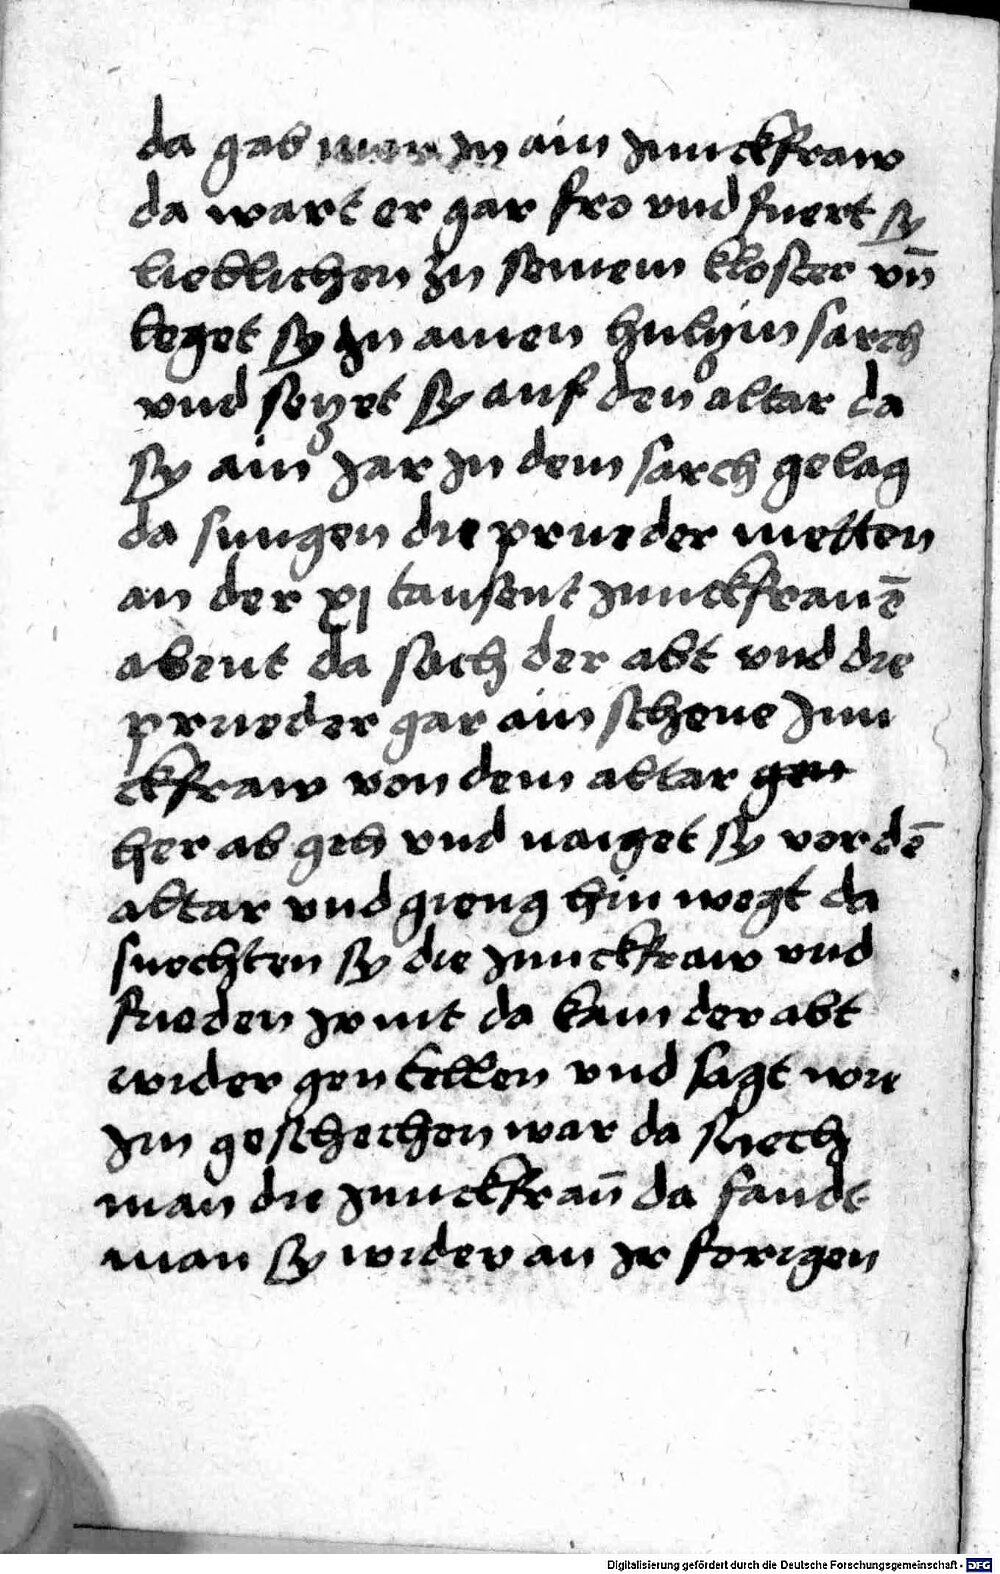 da gab man Im ain Junckfraw
da wart er gar fro vnd fuert sy
lieblichen zu seinem kloster vn̄
leget sy In ainen hulzin sarch
vnd seczet sy auf den altar da
sy ain Jar In dem sarch gelag
da sungen die prueder metten
an der xj tausent Junckfrauē
abent da sach der abt vnd die
prueder gar ain schene Jun
ckfraw von dem altar gen
her ab geh vnd naiget sy vor dē
altar vnd gieng hin wegt da
suechten sy die Junckfraw vnd
fueden Ir nit da kam der abt
wider gen kellen vnd sagt wie
Im geschechen war da suech
man die Junckfraū da fandt
man sy wider an Ir forigen
Digitalisierung gefördert durch die Deutsche Forschungsgemeinschaft - DFG